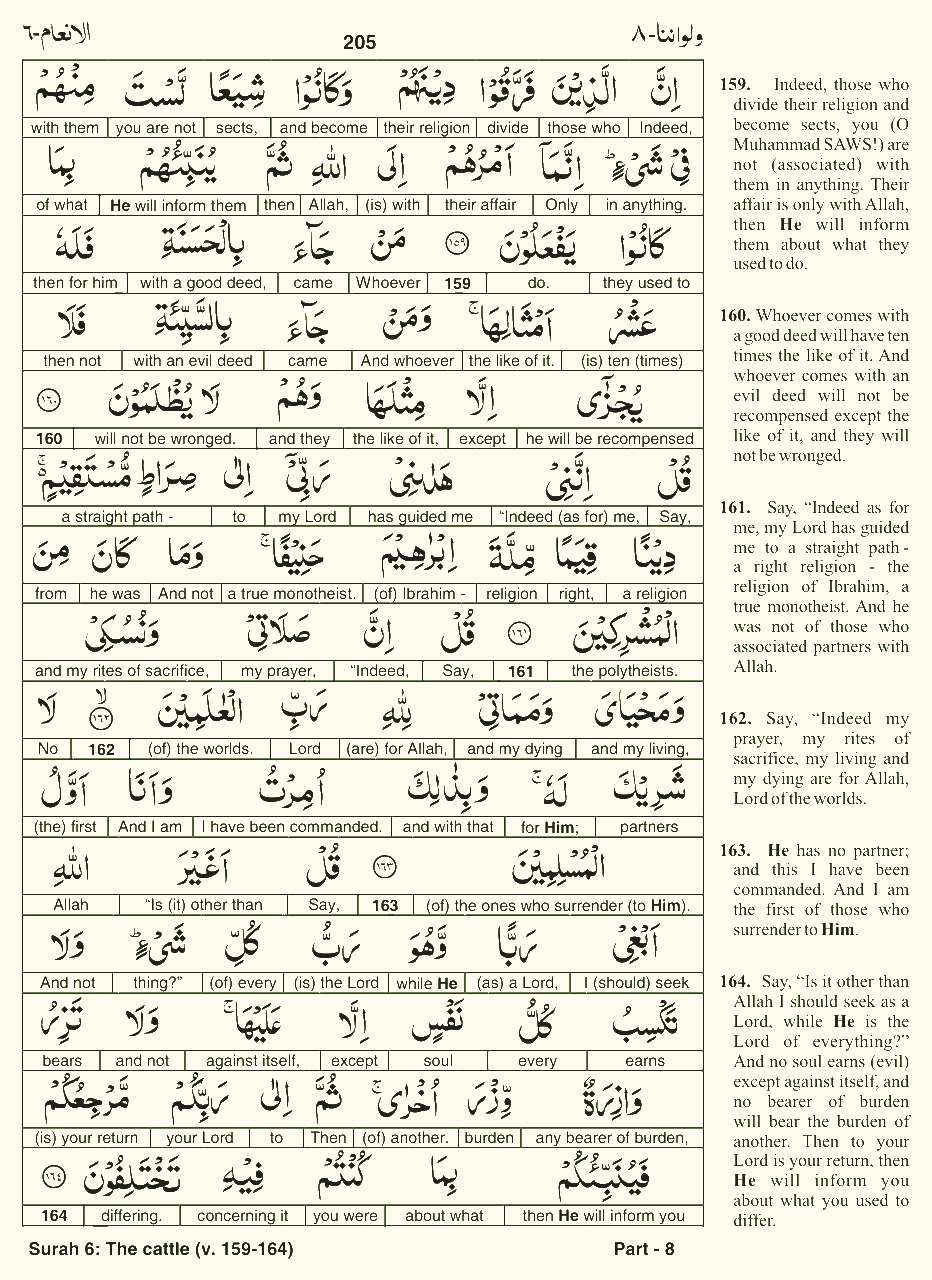 الانعام-٦
205
ولواننا-٨
اِنَّ الَّذِيْنَ فَرَّقُوْا دِيْنَهُمْ وَكَانُوْا شِيَعًا لَّسْتَ مِنْهُمْ
Indeed, | those who | divide | their religion | and become | sects, | you are not | with them
فِىْ شَىْءٍ ؕ اِنَّمَاۤ اَمْرُهُمْ اِلَى اللّٰهِ ثُمَّ يُنَبِّئُهُمْ بِمَا
in anything. | Only | their affair | (is) with | Allah, | then | He will inform them | of what
كَانُوْا يَفْعَلُوْنَ ١٥٩ مَنْ جَآءَ بِالْحَسَنَةِ فَلَهٗ
they used to | do. | 159 | Whoever | came | with a good deed, | then for him
عَشْرُ اَمْثَالِهَا ۚ وَمَنْ جَآءَ بِالسَّيِّئَةِ فَلَا
(is) ten (times) | the like of it. | And whoever | came | with an evil deed | then not
يُجْزٰٓى اِلَّا مِثْلَهَا وَهُمْ لَا يُظْلَمُوْنَ ١٦٠
he will be recompensed | except | the like of it, | and they | will not be wronged. | 160
قُلْ اِنَّنِىْ هَدٰىنِىْ رَبِّىْۤ اِلٰى صِرَاطٍ مُّسْتَقِيْمٍ ۚ
Say, | “Indeed (as for) me, | has guided me | my Lord | to | a straight path -
دِيْنًا قِيَمًا مِّلَّةَ اِبْرٰهِيْمَ حَنِيْفًا ۚ وَمَا كَانَ مِنَ
a religion | right, | religion | (of) Ibrahim - | a true monotheist. | And not | he was | from
الْمُشْرِكِيْنَ ١٦١ قُلْ اِنَّ صَلَاتِىْ وَنُسُكِىْ
the polytheists. | 161 | Say, | “Indeed, | my prayer, | and my rites of sacrifice,
وَمَحْيَاىَ وَمَمَاتِىْ لِلّٰهِ رَبِّ الْعٰلَمِيْنَ ۙ ١٦٢ لَا
and my living, | and my dying | (are) for Allah, | Lord | (of) the worlds. | 162 | No
شَرِيْكَ لَهٗ ۚ وَبِذٰلِكَ اُمِرْتُ وَاَنَا اَوَّلُ
partners | for Him; | and with that | I have been commanded. | And I am | (the) first
الْمُسْلِمِيْنَ ١٦٣ قُلْ اَغَيْرَ اللّٰهِ
(of) the ones who surrender (to Him). | 163 | Say, | “Is (it) other than | Allah
اَبْغِىْ رَبًّا وَّهُوَ رَبُّ كُلِّ شَىْءٍ ؕ وَلَا
I (should) seek | (as) a Lord, | while He | (is) the Lord | (of) every | thing?” | And not
تَكْسِبُ كُلُّ نَفْسٍ اِلَّا عَلَيْهَا ۚ وَلَا تَزِرُ
earns | every | soul | except | against itself, | and not | bears
وَازِرَةٌ وِّزْرَ اُخْرٰى ۚ ثُمَّ اِلٰى رَبِّكُمْ مَّرْجِعُكُمْ
any bearer of burden, | burden | (of) another. | Then | to | your Lord | (is) your return
فَيُنَبِّئُكُمْ بِمَا كُنْتُمْ فِيْهِ تَخْتَلِفُوْنَ ١٦٤
then He will inform you | about what | you were | concerning it | differing. | 164
159. Indeed, those who
divide their religion and
become sects, you (O
Muhammad SAWS!) are
not (associated) with
them in anything. Their
affair is only with Allah,
then He will inform
them about what they
used to do.
160. Whoever comes with
a good deed will have ten
times the like of it. And
whoever comes with an
evil deed will not be
recompensed except the
like of it, and they will
not be wronged.
161. Say, “Indeed as for
me, my Lord has guided
me to a straight path -
a right religion - the
religion of Ibrahim, a
true monotheist. And he
was not of those who
associated partners with
Allah.
162. Say, “Indeed my
prayer, my rites of
sacrifice, my living and
my dying are for Allah,
Lord of the worlds.
163. He has no partner;
and this I have been
commanded. And I am
the first of those who
surrender to Him.
164. Say, “Is it other than
Allah I should seek as a
Lord, while He is the
Lord of everything?”
And no soul earns (evil)
except against itself, and
no bearer of burden
will bear the burden of
another. Then to your
Lord is your return, then
He will inform you
about what you used to
differ.
Surah 6: The cattle (v. 159-164)
Part - 8